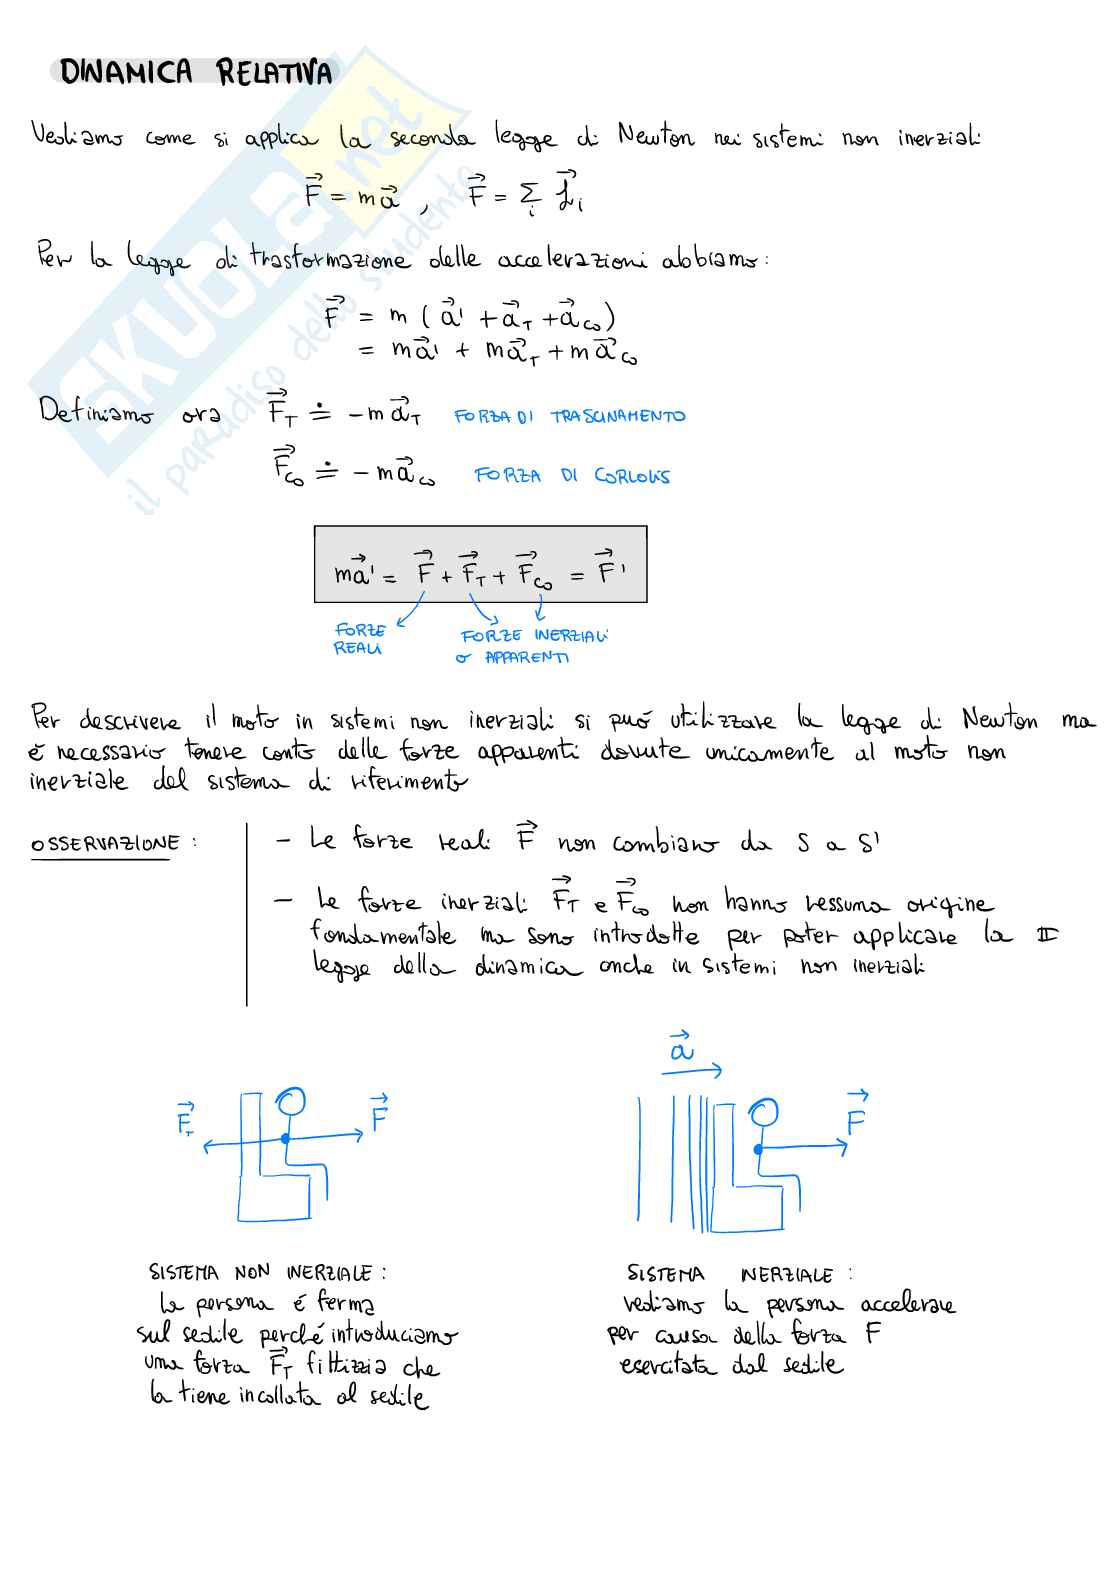 DINAMICA RELATIVA
Vediamo come si applica la seconda legge di Newton nei sistemi non inerziali
F⃗ = ma⃗ , F⃗ = Σᵢ f⃗ᵢ
Per la legge di trasformazione delle accelerazioni abbiamo:
F⃗ = m ( a⃗' + a⃗_T + a⃗_CO )
= ma⃗' + ma⃗_T + ma⃗_CO
Definiamo ora F⃗_T ≐ -ma⃗_T FORZA DI TRASCINAMENTO
F⃗_CO ≐ -ma⃗_CO FORZA DI CORIOLIS
ma⃗' = F⃗ + F⃗_T + F⃗_CO = F⃗'
FORZE REALI
FORZE INERZIALI
o APPARENTI
Per descrivere il moto in sistemi non inerziali si può utilizzare la legge di Newton ma
è necessario tenere conto delle forze apparenti dovute unicamente al moto non
inerziale del sistema di riferimento
OSSERVAZIONE :
- Le forze reali F⃗ non cambiano da S a S'
- Le forze inerziali F⃗_T e F⃗_CO non hanno nessuna origine
fondamentale ma sono introdotte per poter applicare la II
legge della dinamica anche in sistemi non inerziali
F⃗_T F⃗
a⃗ F⃗
SISTEMA NON INERZIALE :
la persona é ferma
sul sedile perché introduciamo
una forza F⃗_T fittizzia che
la tiene incollata al sedile
SISTEMA INERZIALE :
vediamo la persona accelerare
per causa della forza F
esercitata dal sedile
SKUOLA.net
il paradiso dello studente